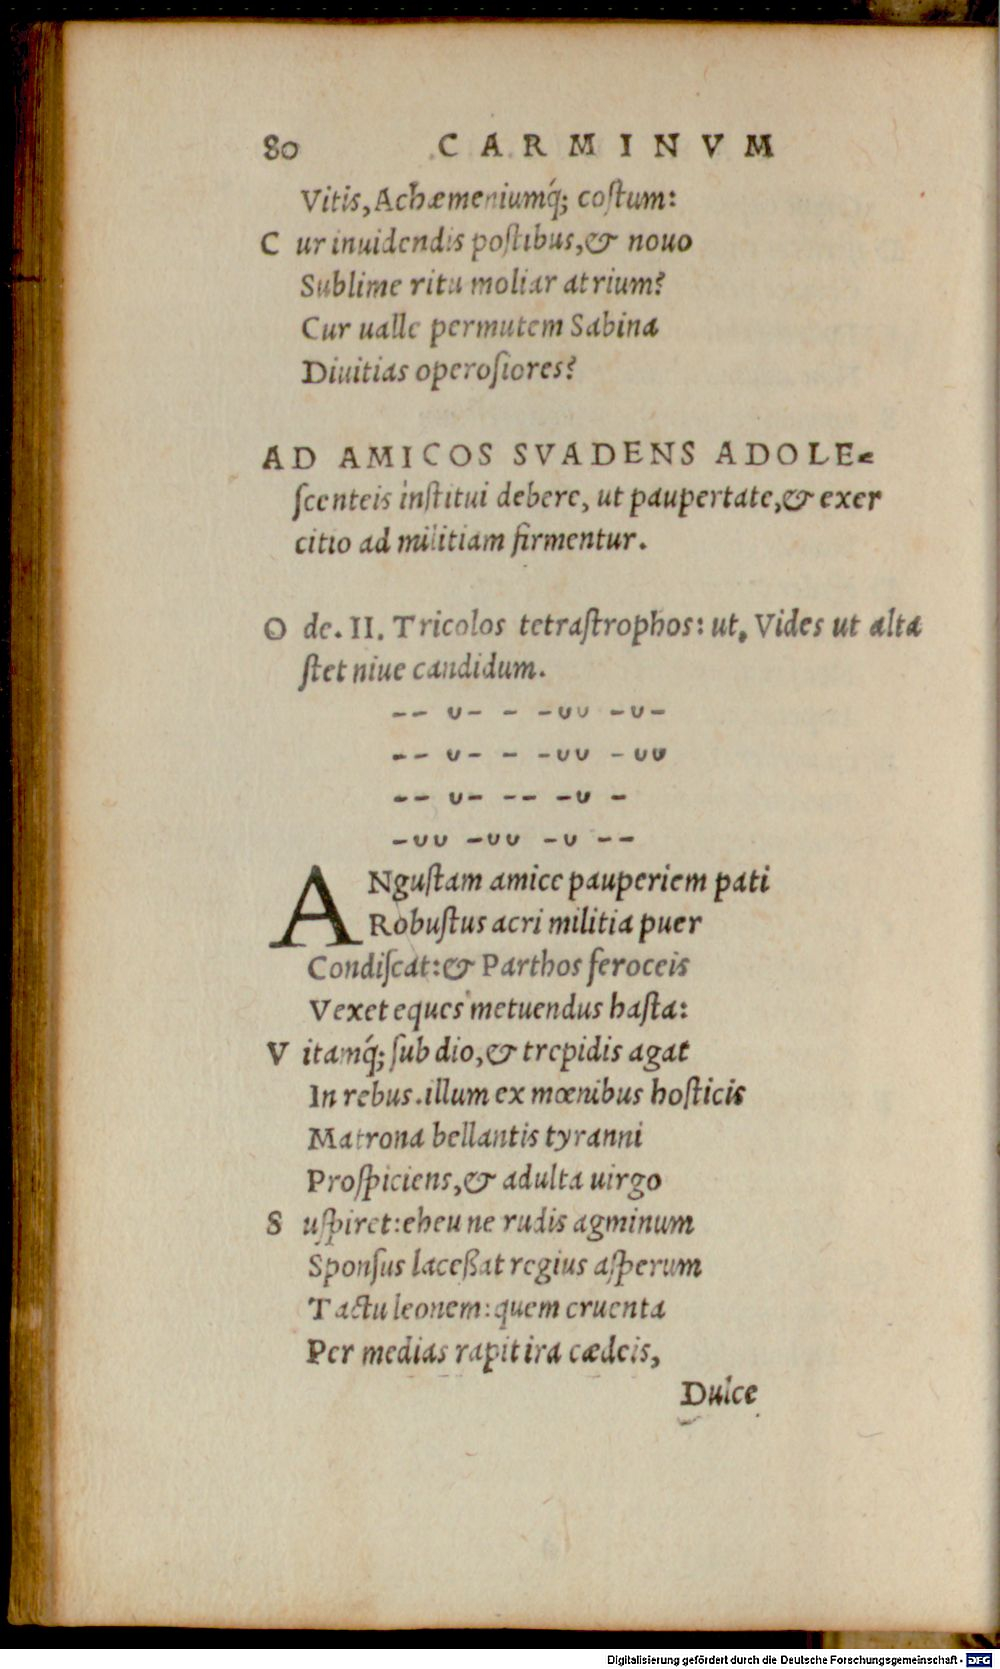 80 CARMINVM
Vitis, Achæmeniumq́; coſtum:
C ur inuidendis poſtibus, & nouo
Sublime ritu moliar atrium?
Cur ualle permutem Sabina
Diuitias operoſiores?
AD AMICOS SVADENS ADOLE-
ſcenteis inſtitui debere, ut paupertate, & exer
citio ad militiam firmentur.
O de. II. Tricolos tetraſtrophos: ut. Vides ut alta
ſtet niue candidum.
-- ᴗ- - -ᴗᴗ -ᴗ-
-- ᴗ- - -ᴗᴗ -ᴗᴗ
-- ᴗ- -- -ᴗ -
-ᴗᴗ -ᴗᴗ -ᴗ --
ANguſtam amice pauperiem pati
Robuſtus acri militia puer
Condiſcat: & Parthos feroceis
Vexet eques metuendus haſta:
V itamq́; ſub dio, & trepidis agat
In rebus. illum ex mœnibus hoſticis
Matrona bellantis tyranni
Proſpiciens, & adulta uirgo
S uſpiret: eheu ne rudis agminum
Sponſus laceßat regius aſperum
Tactu leonem: quem cruenta
Per medias rapit ira cædeis,
Dulce
Digitalisierung gefördert durch die Deutsche Forschungsgemeinschaft - DFG